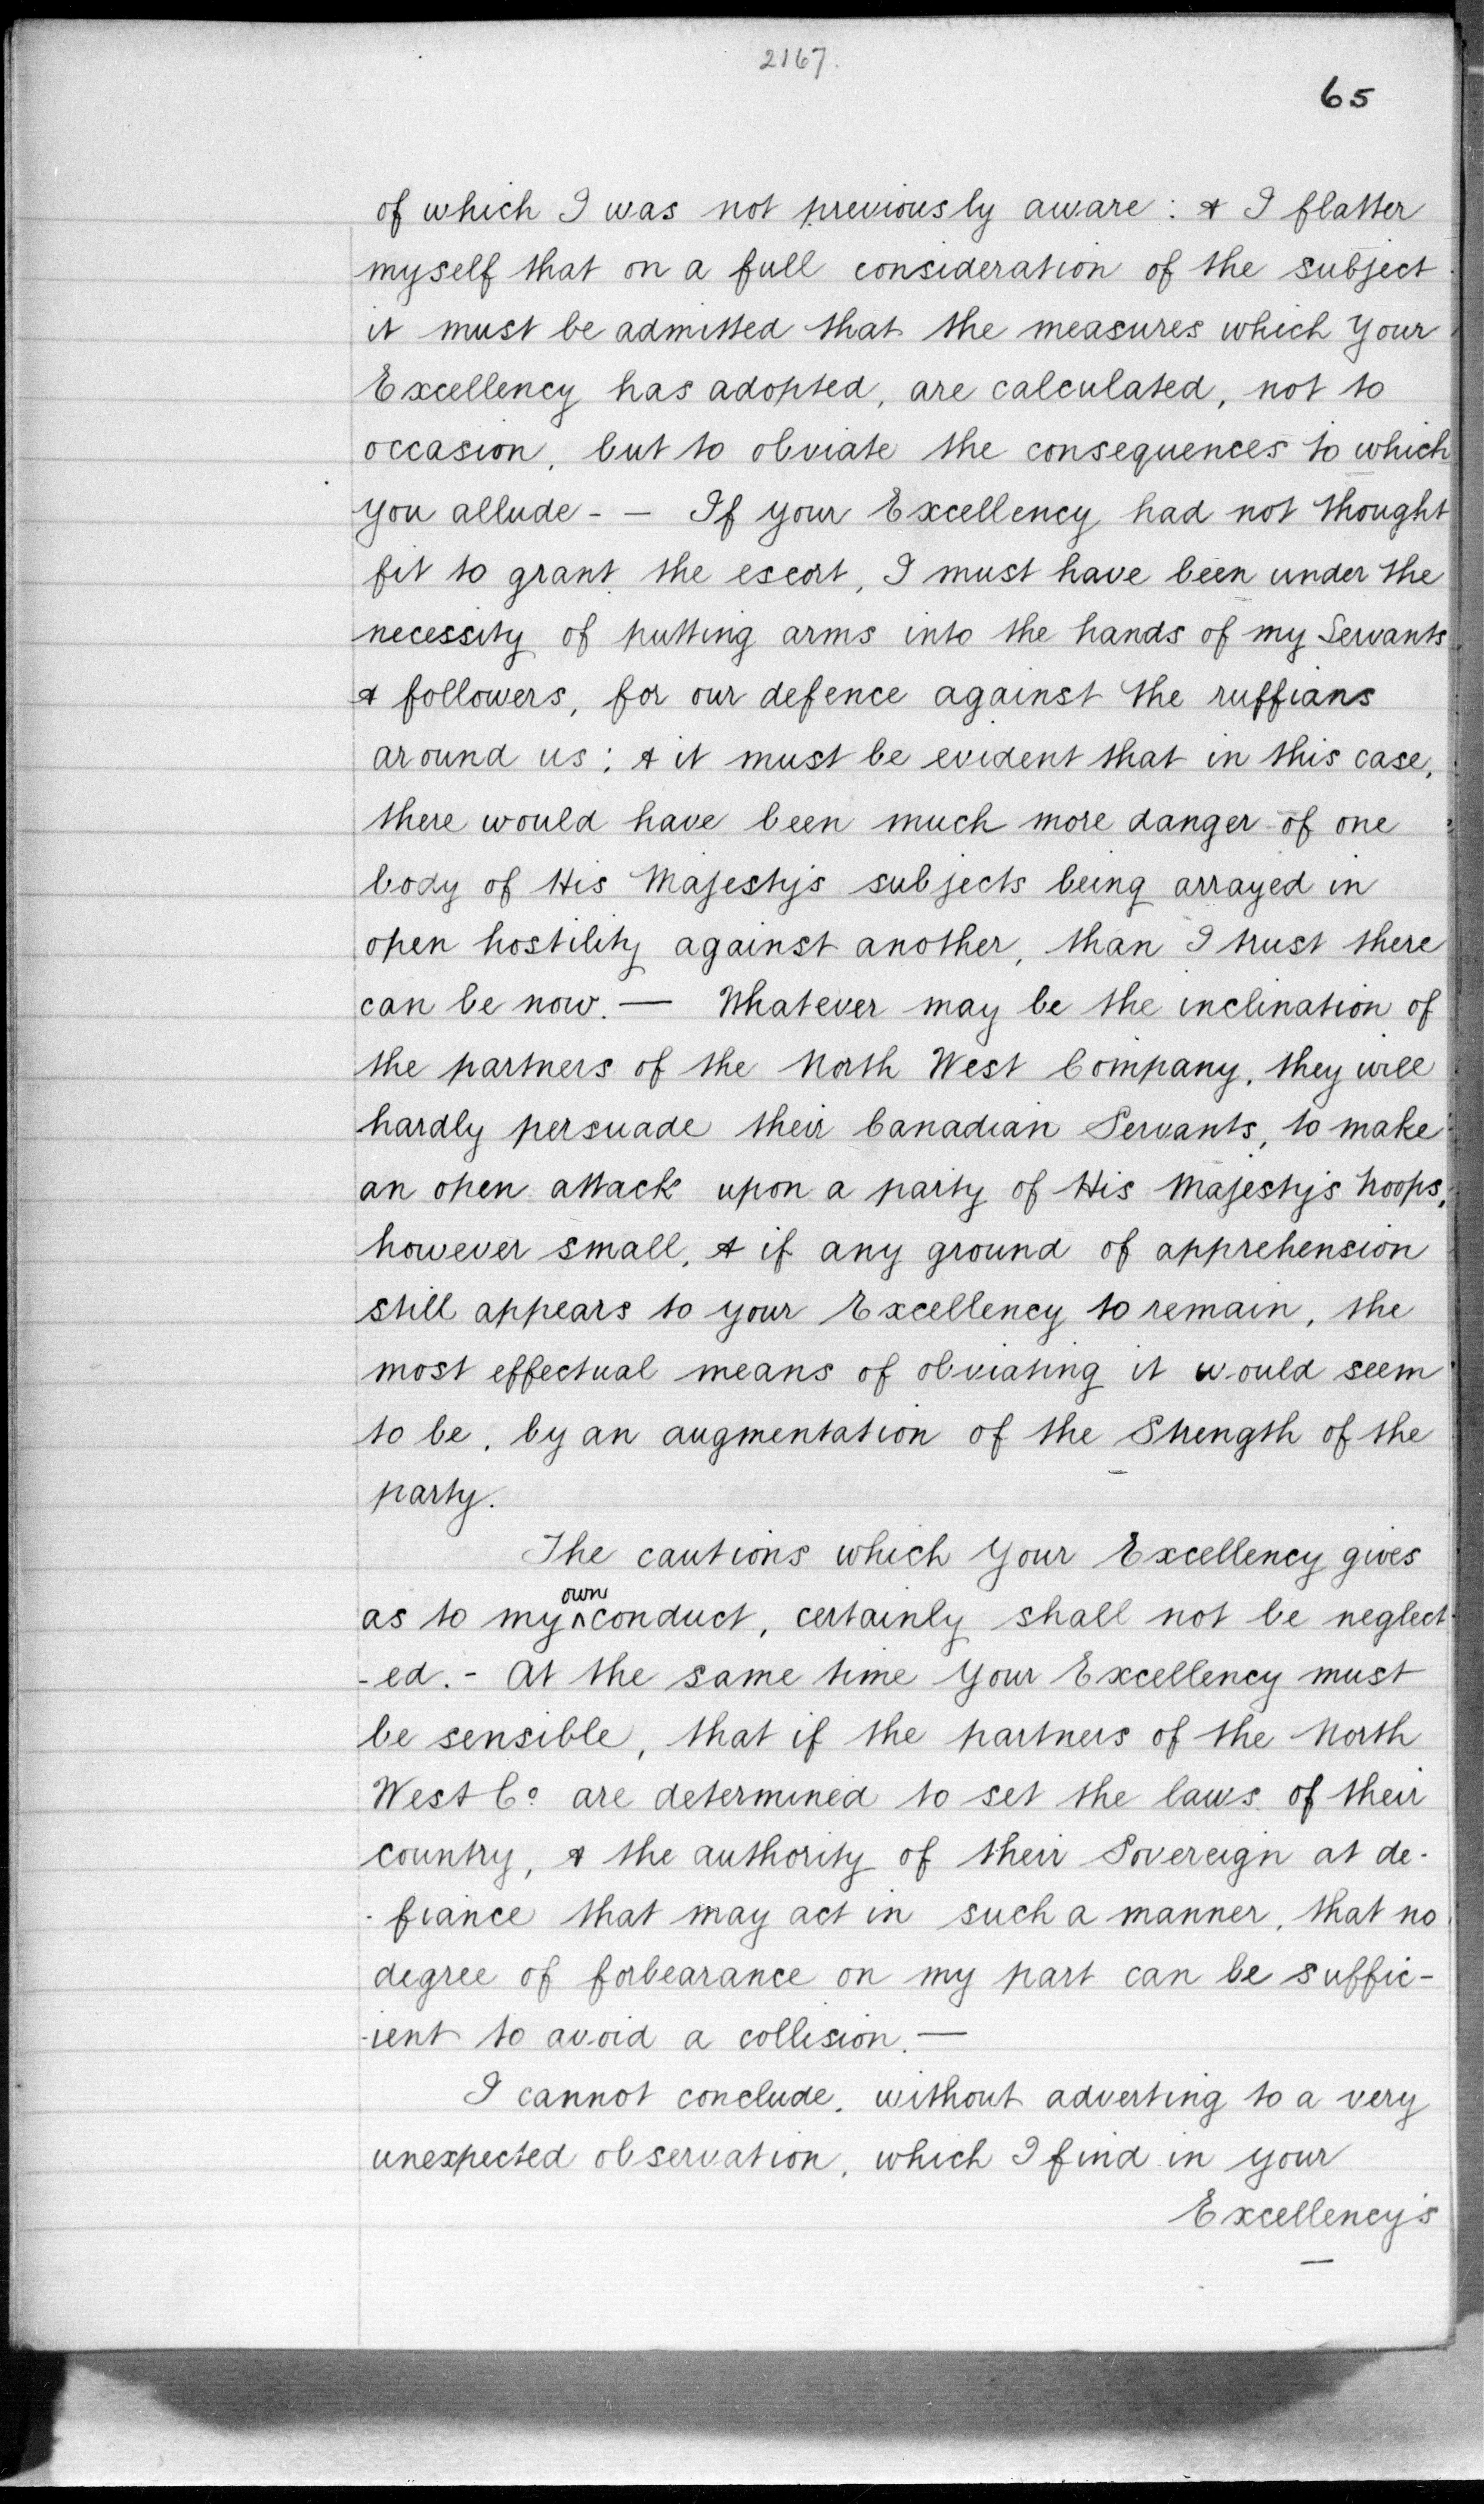 2167.
65
of which I was not previously aware : & I flatter
myself that on a full consideration of the subject
it must be admitted that the measures which Your
Excellency has adopted, are calculated, not to
occasion, but to obviate the consequences to which
you allude - — If your Excellency had not thought
fit to grant the escort, I must have been under the
necessity of putting arms into the hands of my Servants
& followers, for our defence against the ruffians
around us ; & it must be evident that in this case,
there would have been much more danger of one
body of His Majesty's subjects being arrayed in
open hostility against another, than I trust there
can be now. — Whatever may be the inclination of
the partners of the North West Company, they will
hardly persuade their Canadian Servants, to make
an open attack upon a party of His Majesty's troops,
however small, & if any ground of apprehension
still appears to your Excellency to remain, the
most effectual means of obviating it would seem
to be, by an augmentation of the Strength of the
party.
The cautions which Your Excellency gives
as to my own conduct, certainly shall not be neglect-
-ed. - At the same time Your Excellency must
be sensible, that if the partners of the North
West Co are determined to set the laws of their
country, & the authority of their Sovereign at de-
-fiance that may act in such a manner, that no
degree of forbearance on my part can be suffic-
-ient to avoid a collision. —
I cannot conclude, without adverting to a very
unexpected observation, which I find in your
Excellency's